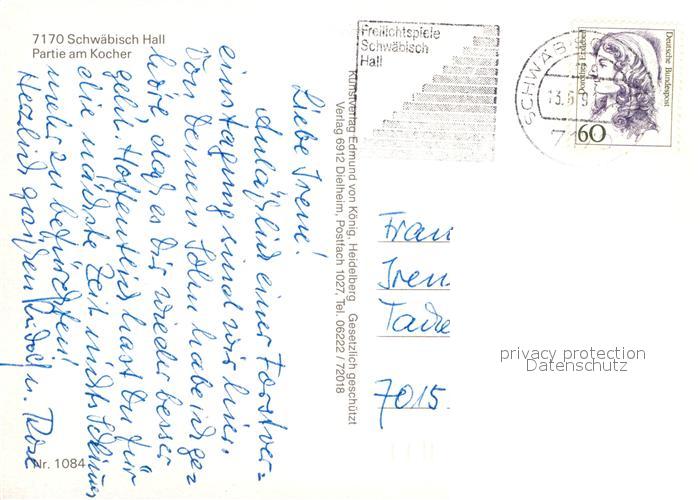 7170 Schwäbisch Hall
Partie am Kocher
Freilichtspiele
Schwäbisch
Hall
SCHWÄB
13.6.9
71
Deutsche Bundespost
60
Liebe Irene!
Anläßlich einer Forstver=
einstagung sind wir hier.
Von Deinem Sohn habe ich ge=
hört daß es Dir wieder besser
geht. Hoffentlich hast Du für
die nächste Zeit nichts Schlimm
mehr zu befürchten!
Herzlich grüßen Rudolf u. Rose
Kunstverlag Edmund von König, Heidelberg Gesetzlich geschützt
Verlag 6912 Dielheim, Postfach 1027, Tel. 06222 / 72018
Frau
Iren
7015.
privacy protection
Datenschutz
Nr. 1084